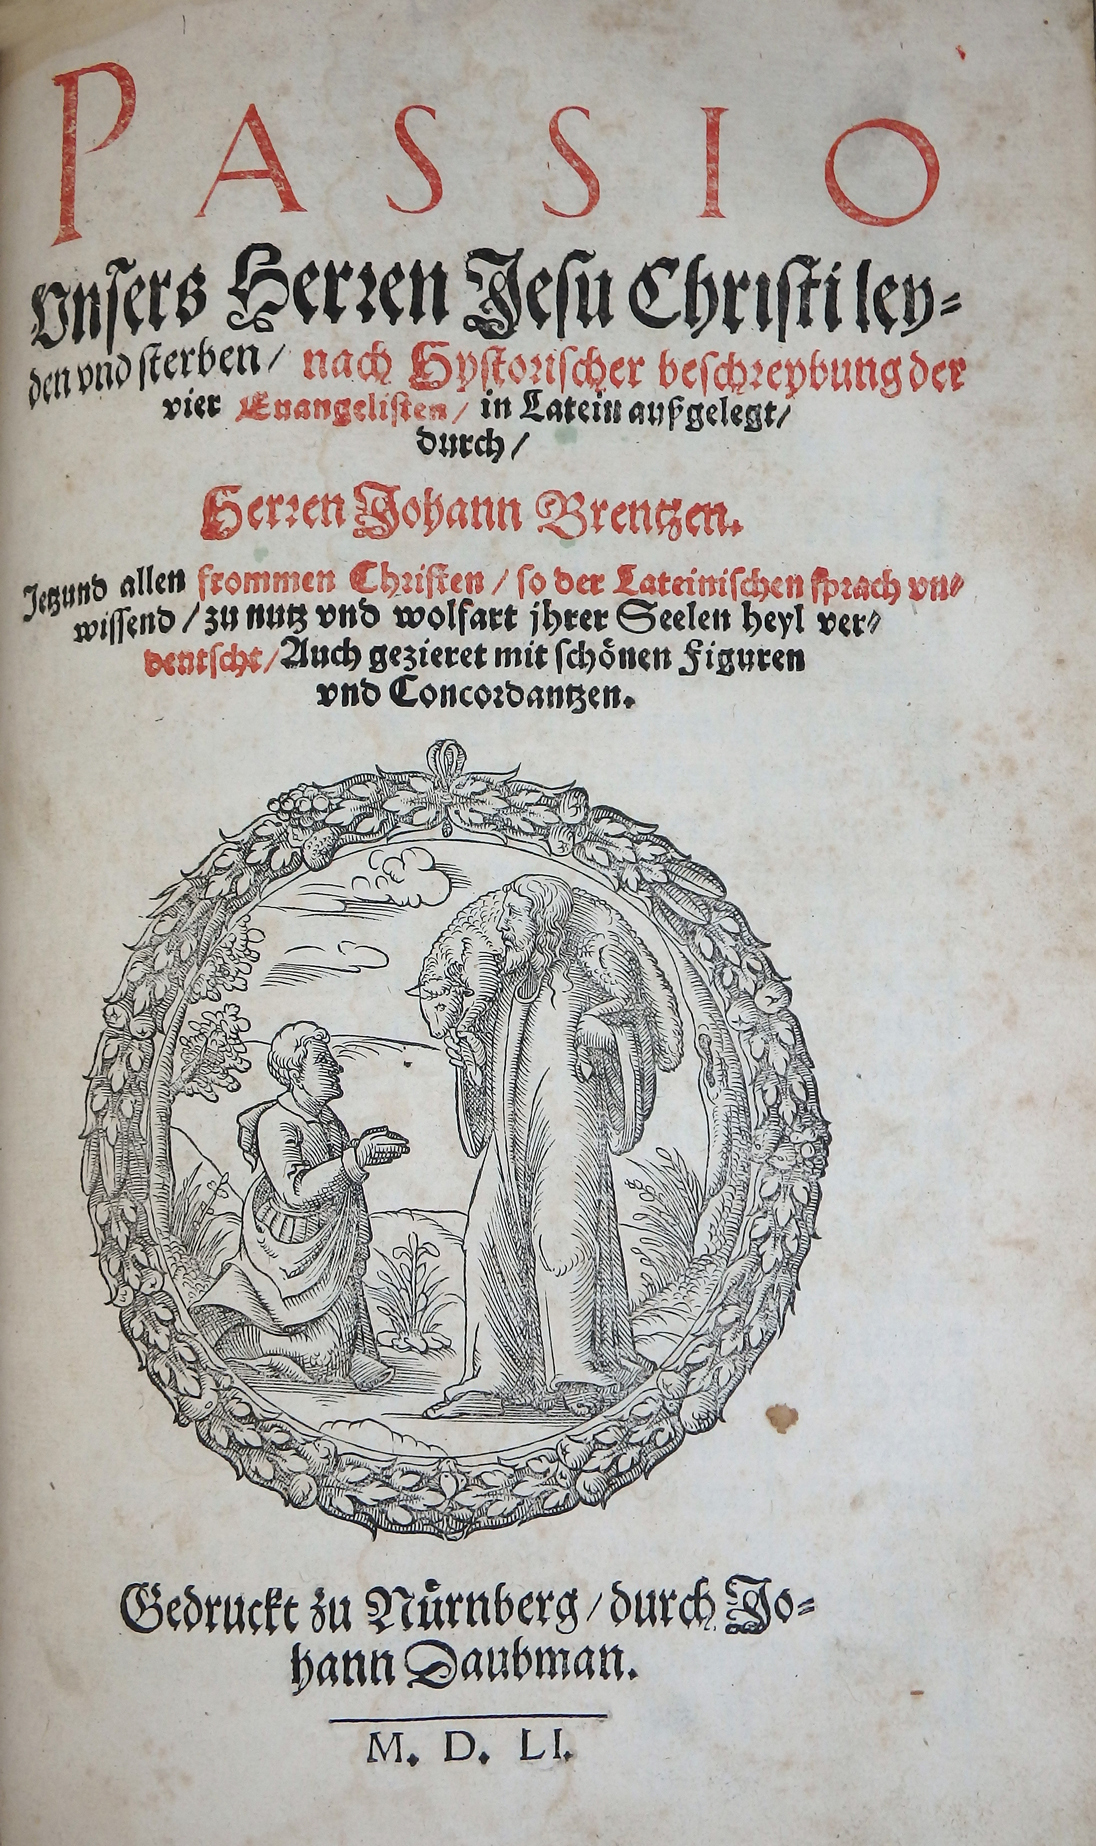 PASSIO
Vnsers Herren Jesu Christi ley⸗
den vnd sterben/ nach Hystorischer beschreybung der
vier Euangelisten/ in Latein außgelegt/
durch/
Herren Johann Brentzen.
Jetzund allen frommen Christen/ so der Lateinischen sprach vn⸗
wissend/ zu nutz vnd wolfart jhrer Seelen heyl ver⸗
deutscht/ Auch gezieret mit schönen Figuren
vnd Concordantzen.
Gedruckt zu Nürnberg/ durch Jo⸗
hann Daubman.
M. D. LI.